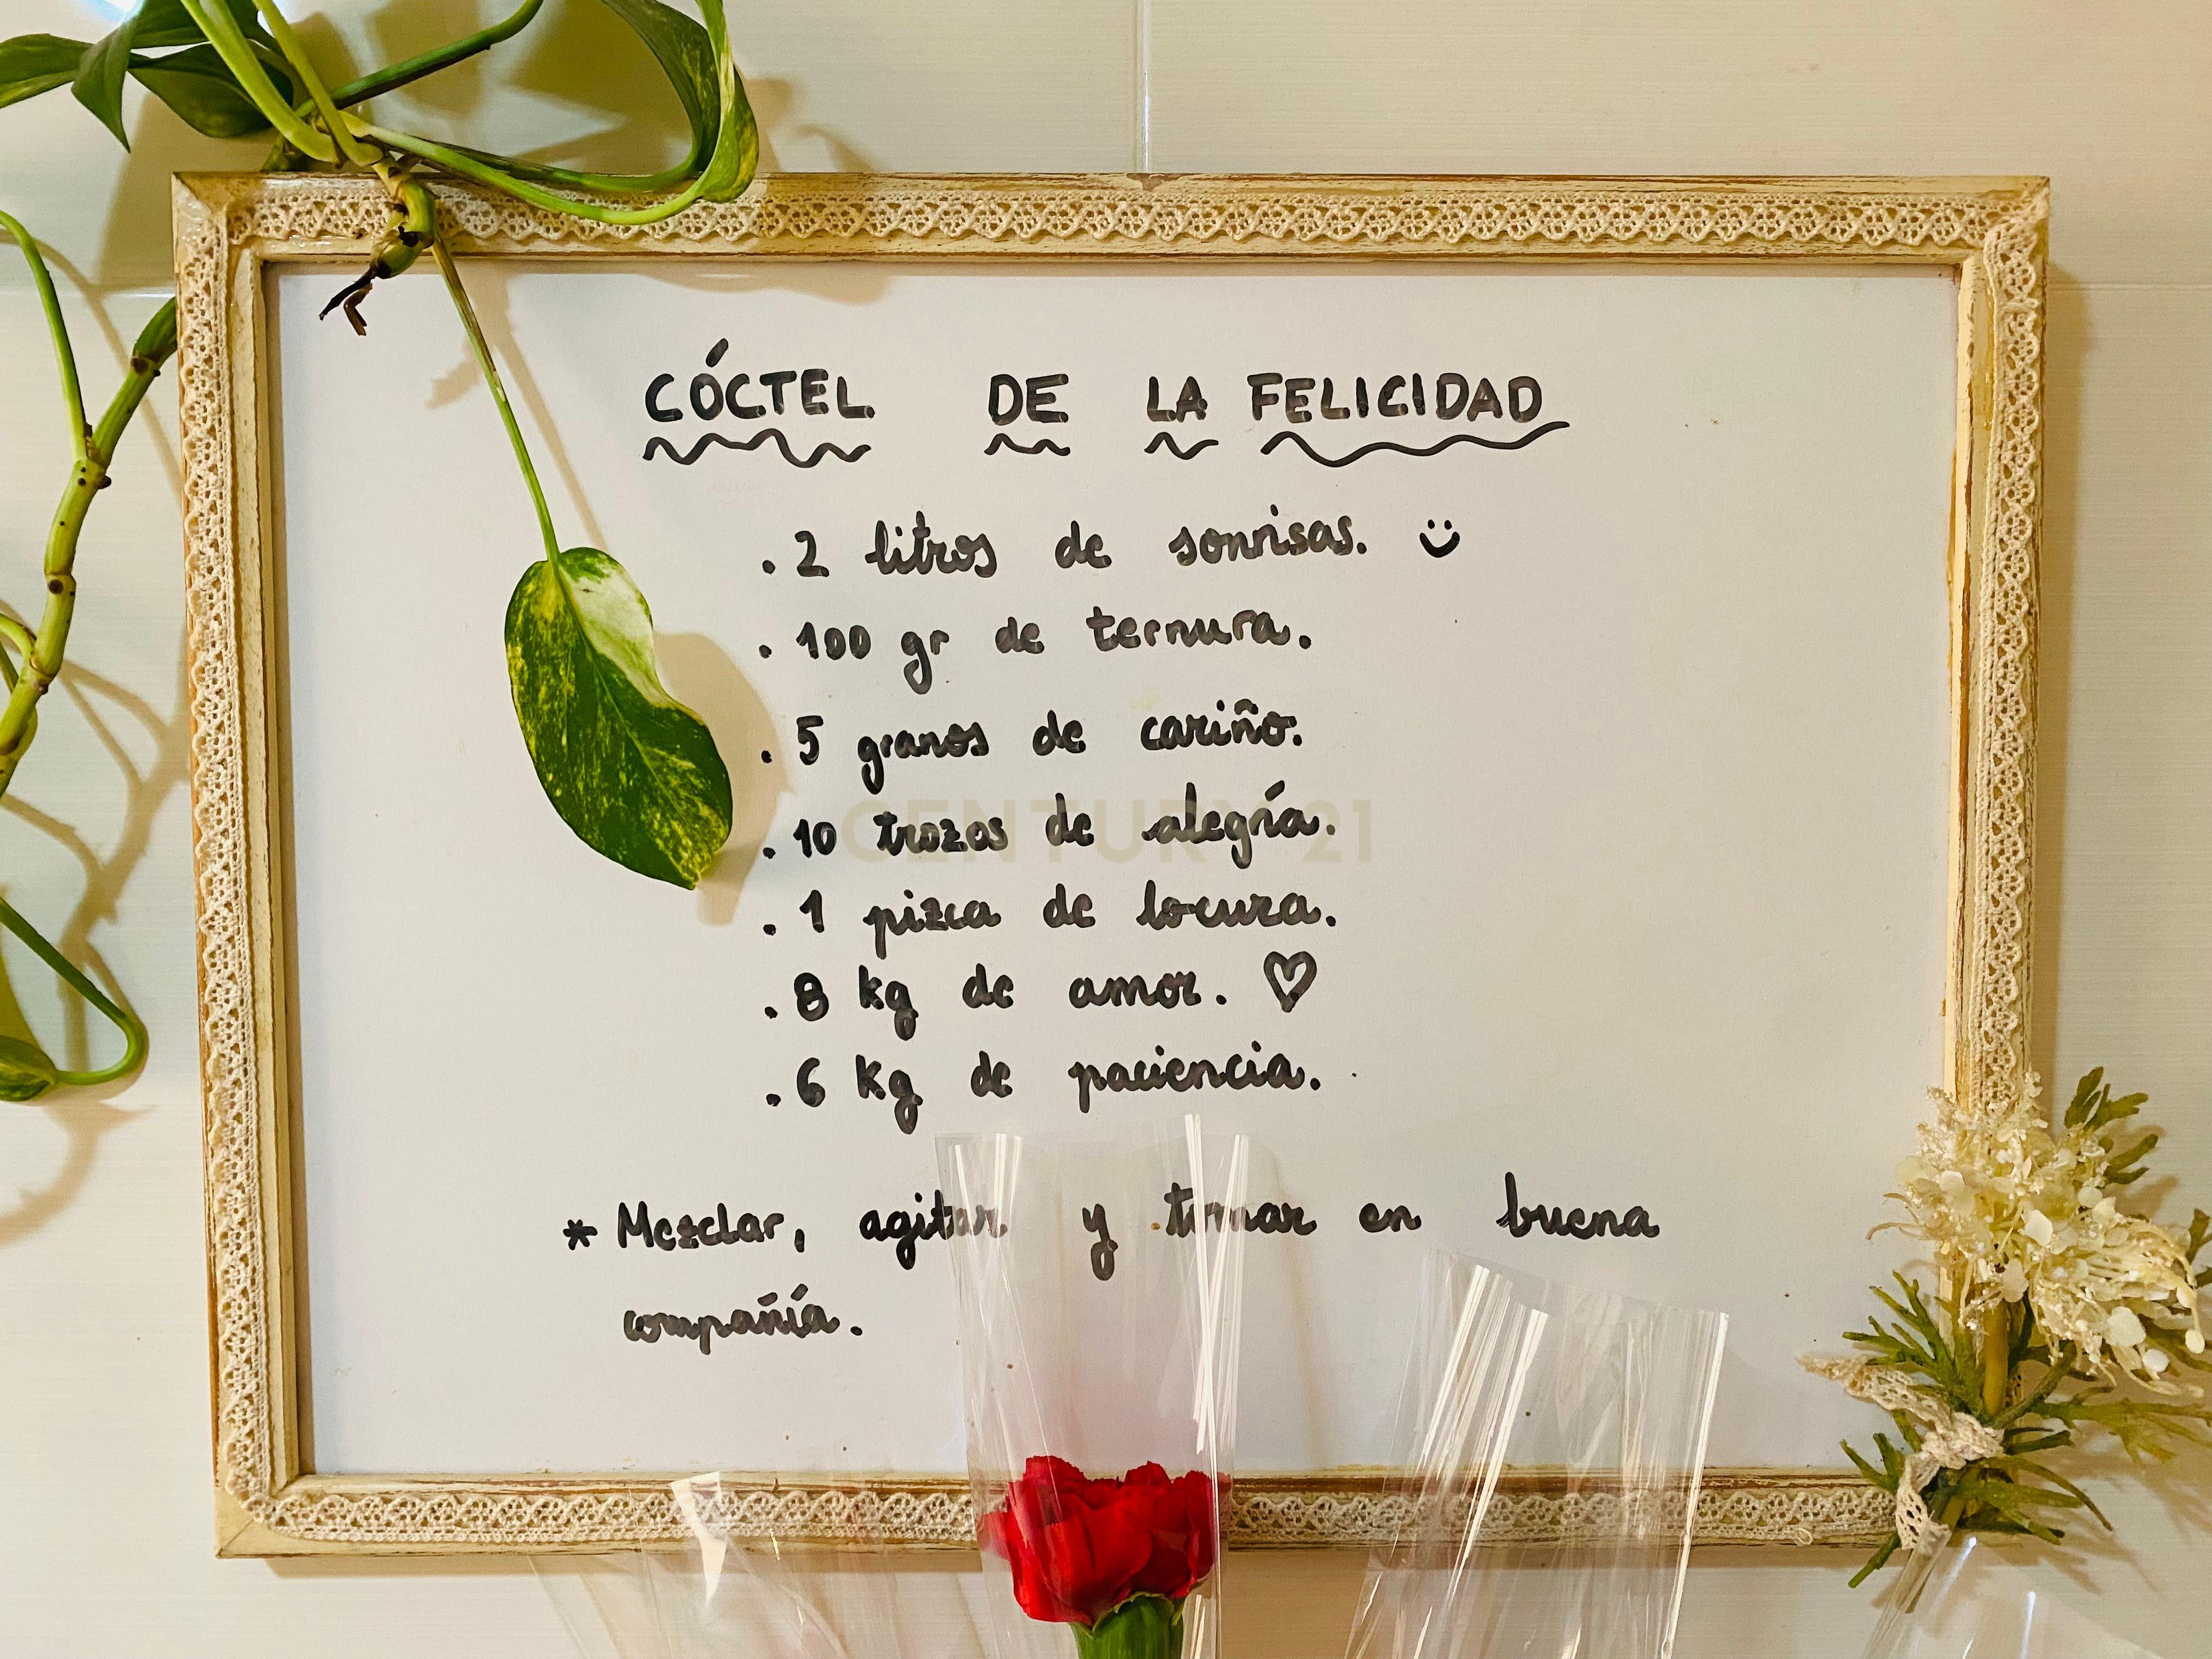 CÓCTEL DE LA FELICIDAD
. 2 litros de sonrisas. ☺
. 100 gr de ternura.
. 5 granos de cariño.
. 10 trozos de alegría.
CENTURY 21
. 1 pizca de locura.
. 8 kg de amor. ♡
. 6 kg de paciencia.
* Mezclar, agitar y tomar en buena
compañía.